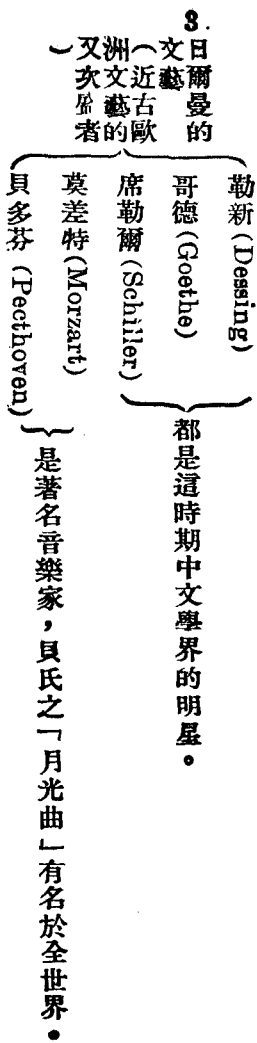 3. 日爾曼的
文藝
(近古歐
洲文藝的
又次盛者
)
勒新(Dessing)
哥德(Goethe)
席勒爾(Schiller)
都是這時期中文學界的明星。
莫差特(Morzart)
貝多芬(Pecthoven)
是著名音樂家,貝氏之「月光曲」有名於全世界。